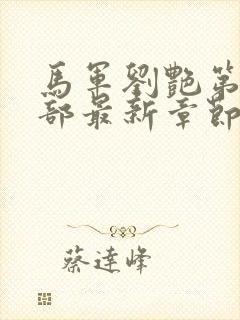 馬軍劉艷第
部最新章節
蔡達峰